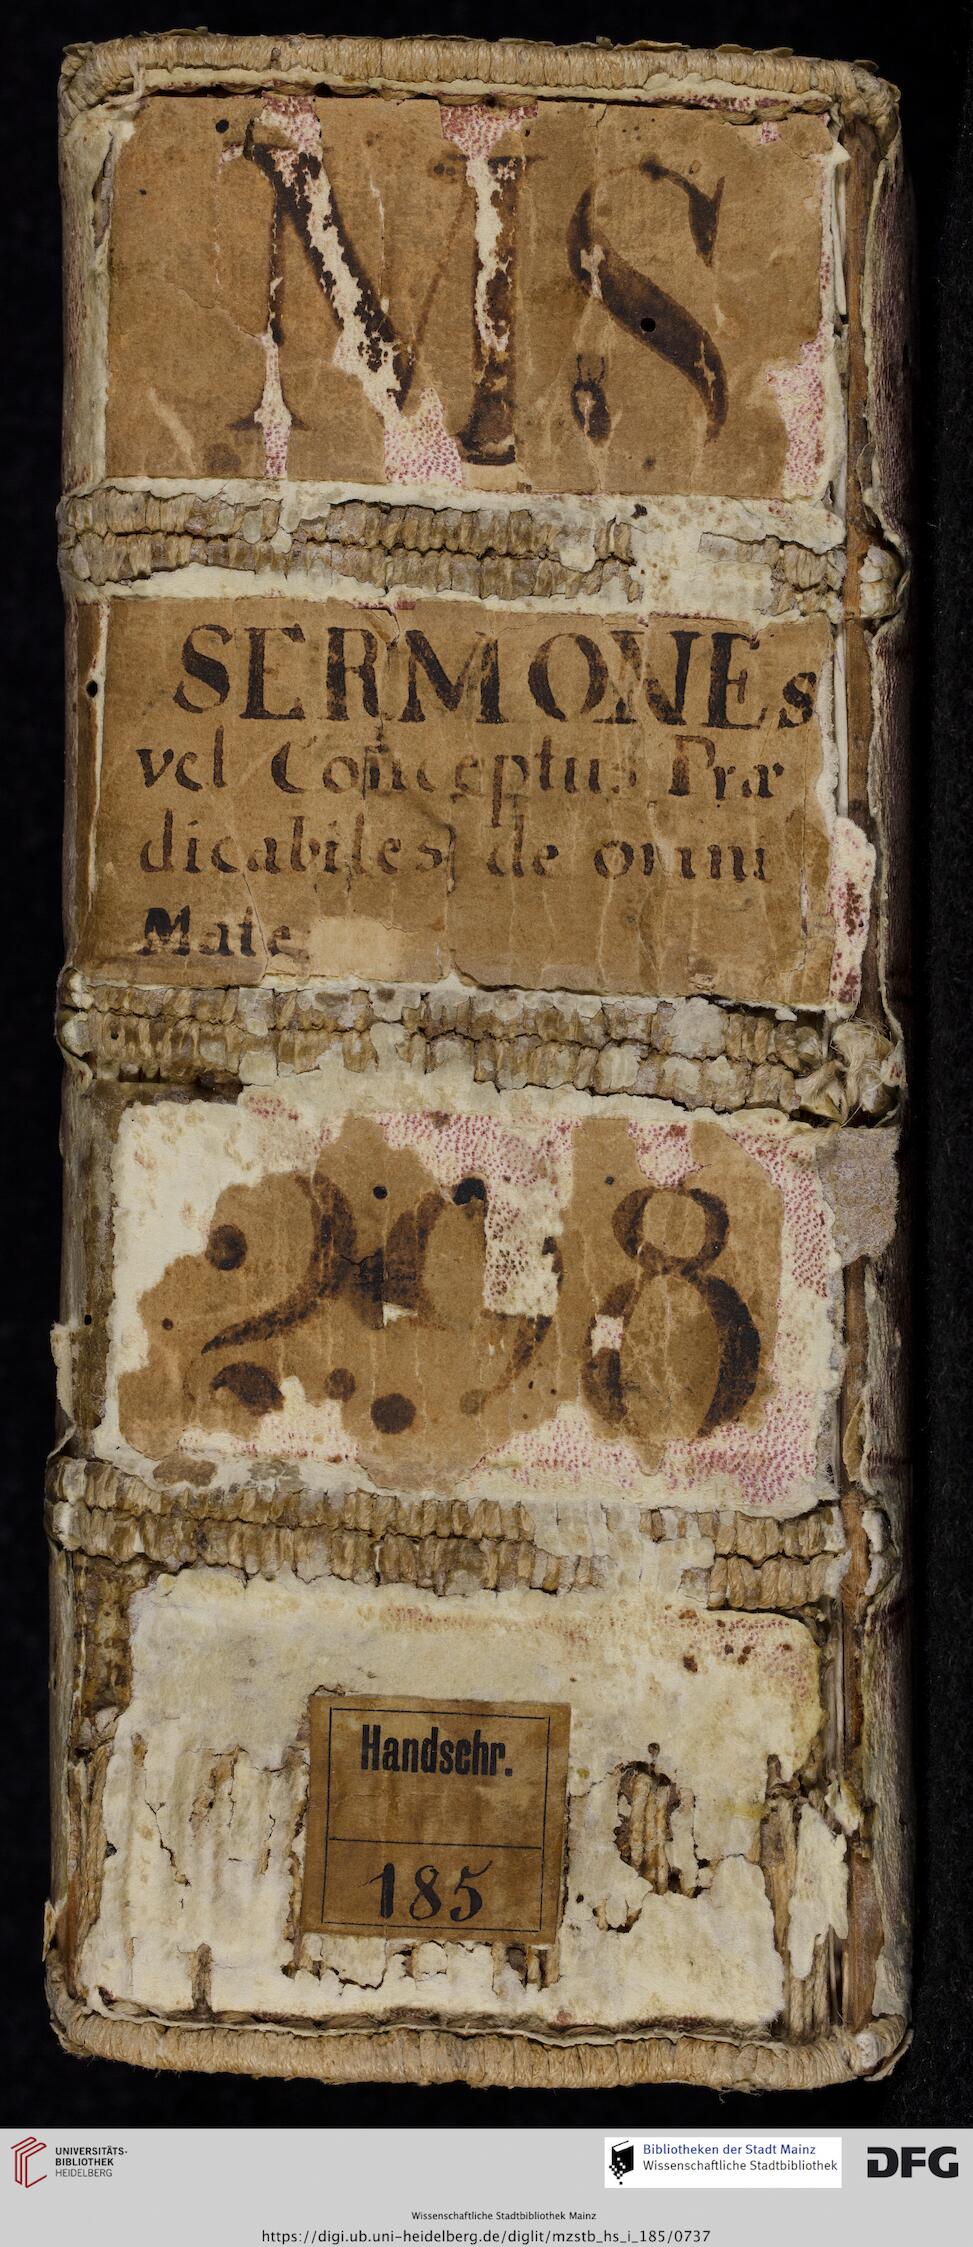 MS
SERMONEs
vel Conceptus Præ
dicabiles de omni
Mate
8
Handschr.
185
UNIVERSITÄTS-
BIBLIOTHEK
HEIDELBERG
Bibliotheken der Stadt Mainz
Wissenschaftliche Stadtbibliothek
DFG
Wissenschaftliche Stadtbibliothek Mainz
https://digi.ub.uni-heidelberg.de/diglit/mzstb_hs_i_185/0737